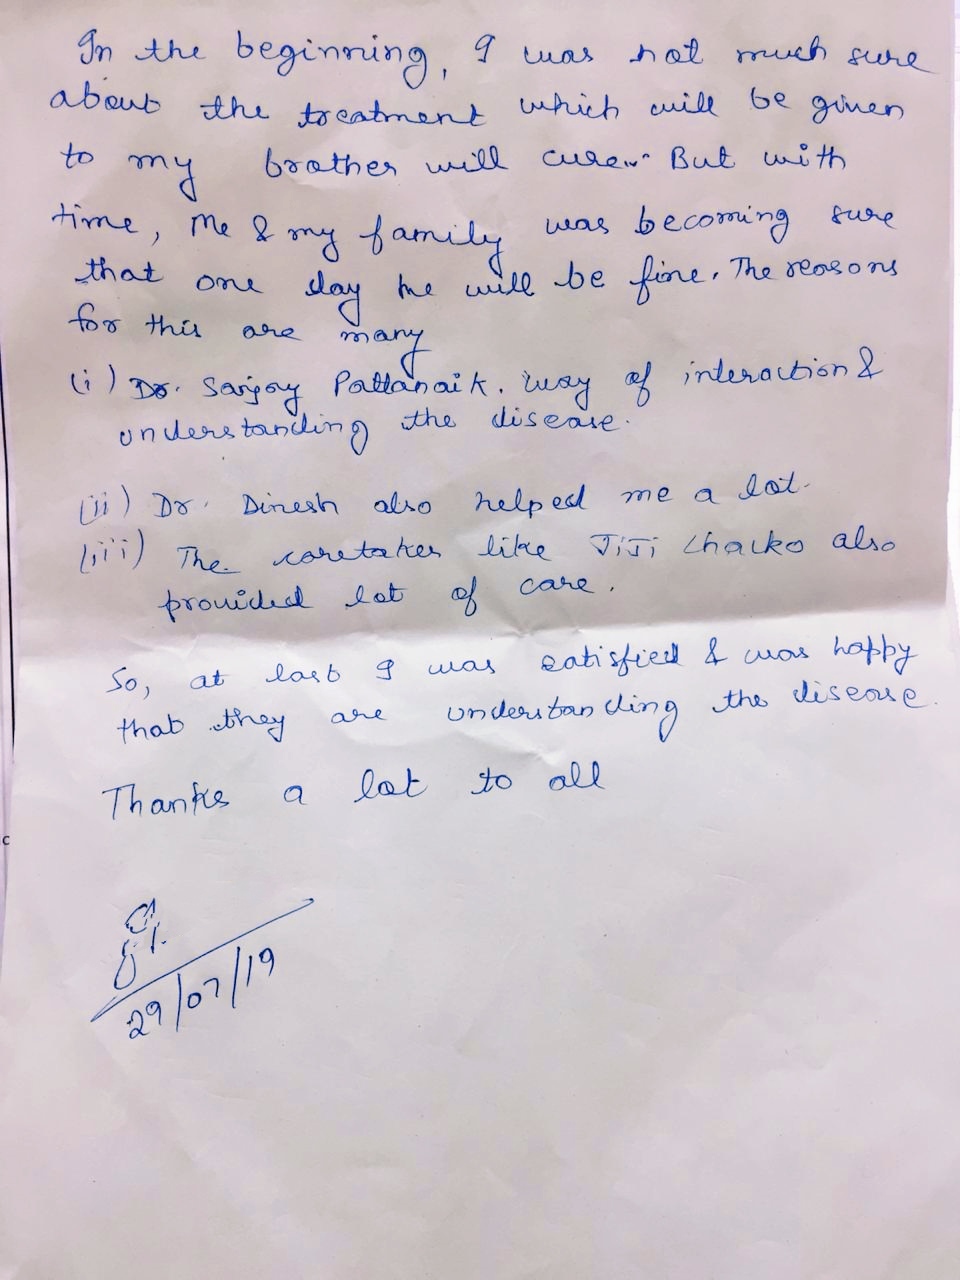 In the beginning, I was not much sure
about the treatment which will be given
to my brother will cure. But with
time, Me & my family was becoming sure
that one day he will be fine. The reasons
for this are many
(i) Dr. Sanjay Pattanaik. way of interaction &
understanding the disease.
(ii) Dr. Dinesh also helped me a lot.
(iii) The caretaker like JiJi Chacko also
provided lot of care.
So, at last I was satisfied & was happy
that they are understanding the disease.
Thanks a lot to all
29/07/19
c